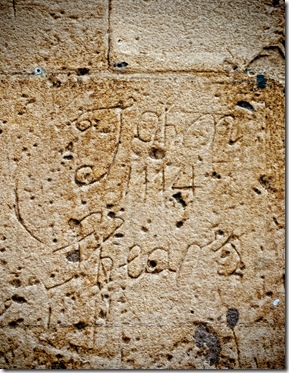 John
1114
Spears